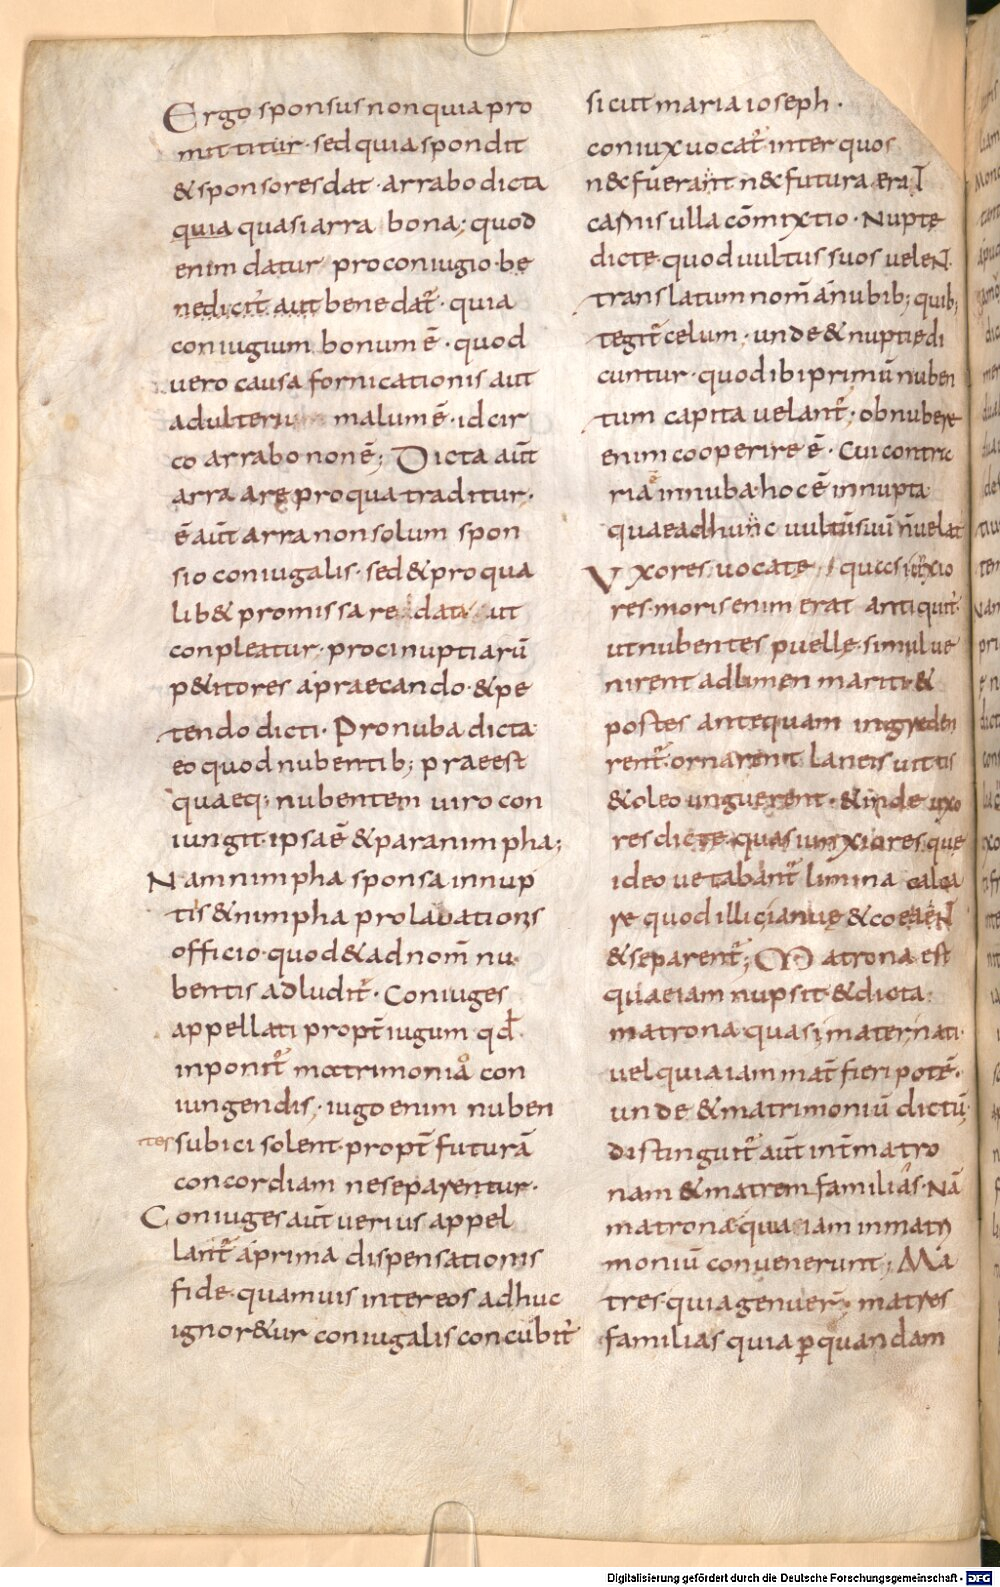 Ergo sponsus non quia pro
mittitur · sed quia spondit
& sponsores dat · arrabo dicta
quia quasi arra bona; quod
enim datur pro coniugio be
nedicit̃ aut bene dat̃ · quia
coniugium bonum ē · quod
vero causa fornicationis aut
adulteriu malum ē · idcir
co arrabo non ē; Dicta aut̄
arra a rę pro qua traditur ·
ē aut̄ arra non solum spon
sio coniugalis · sed & pro qua
lib& promissa re data ut
conpleatur · proci nuptiarū
p&itores a praecando · & pe
tendo dicti · Pronuba dicta
eo quod nubentib; praeest
quaeq; nubentem viro con
iungit · ipsa ē & paranimpha;
Nam nimpha sponsa in nup
tis & nimpha pro lavationis
officio · quod & ad nom̄ nu
bentis adludit̃ · Coniuges
appellati propt̄ iugum qđ
inponit̃ matrimonio con
iungendis · iugo enim nuben
tes subici solent · propt̄ futurā
concordiam ne separentur ·
Coniuges aut̄ verius appel
lant̃ a prima dispensationis
fide · quamuis inter eos adhuc
ignor&ur coniugalis concubit᾿
sicut maria ioseph ·
coniux vocat̃ · inter quos
n& fuerant n& futura erat
carnis ulla cōmixtio · Nupte
dicte · quod uultus suos velent
translatum nom̄ a nubib; quib;
tegit̃ celum · unde & nuptiedi
cuntur · quod ibi primū nuben
tum capita velant̃ · obnubere
enim cooperire ē · Cui contra
ria innuba · hoc ē innupta
quae adhunc uultū suū n̄ velat
Vxores vocate quasi unxio
res · moris enim erat antiquit᾿
ut nubentes puelle · simul ve
nirent ad limen mariti · &
postes antequam ingreden
rent̃ · ornarent laneis vittis
& oleo unguerent · & inde uxo
res dicte · quasi unxiores que
ideo vetabant̃ limina calca
re quod illic ianuę & coeant
& separent̃; Matrona est
quae iam nupsit · & dicta
matrona · quasi mater nati ·
vel quia iam mat̄ fieri potē ·
unde & matrimoniū dictū ·
distinguit̃ aut̄ int̄ matro
nam & matrem familias · Nā
matronę quia iam in matri
moniū convenerunt; Ma
tres · quia genuer̄; matres
familias quia ꝑ quandam
Digitalisierung gefördert durch die Deutsche Forschungsgemeinschaft - DFG